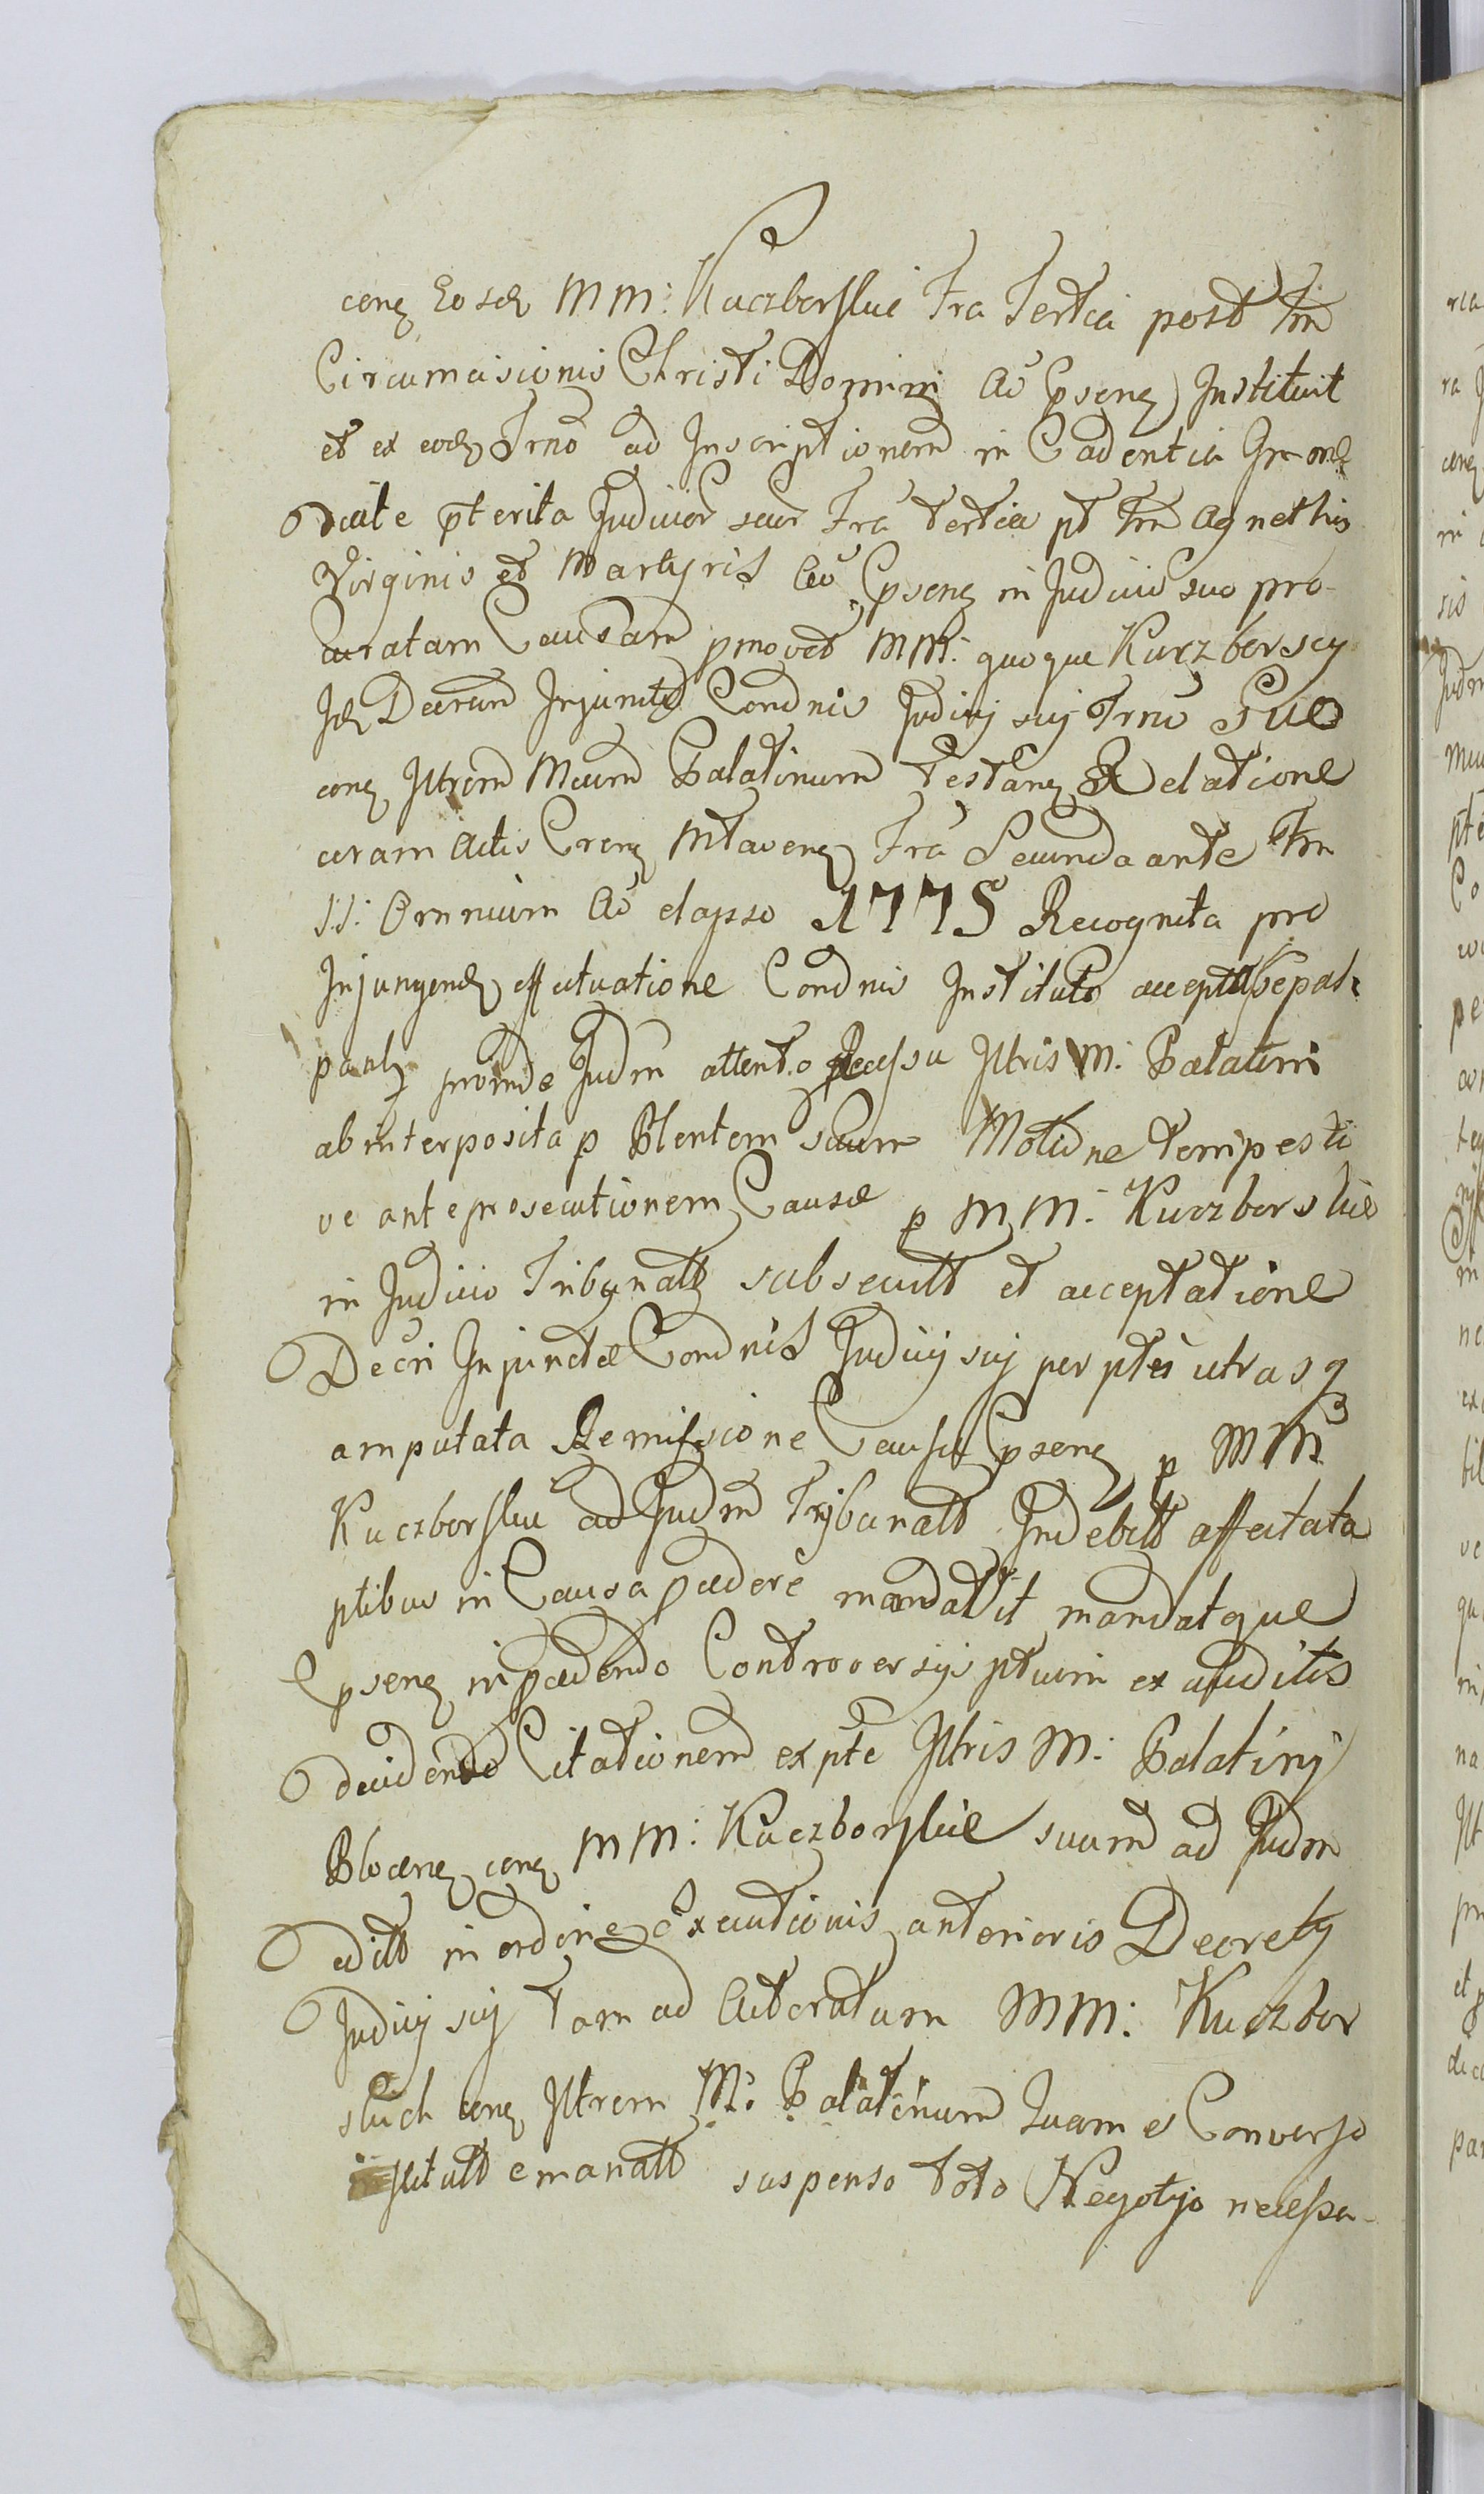 conq eosd MM: Kuczborskie Fra Tertia post Fm
Circumcisionis Christi Domini Ao Cpsenq Instituit
et ex eodq Trno ad Inscriptionem in Cadentia
pterita Judicior suor Fra tertia pt Fm Agnethis
Virginis et Martyris Ao Cpsenq in Judicio suo pro-
curatam Causam pmovet MM: quoque Kuczborscy
Id Decrum Injunctae Condnis Judicij suj Trno Suo
conq Jltrem Mcum Palatinum testanq Relatione
coram Actis Crenq Mtavenq Fra Secunda ante Fm
SS: Omnium Ao elapso 1775 Recognita pro
Injungend effectuatione Condnis Instituto
proinde Judm attento Recessu Jltris M: Palatini
ab interposita p Plentem suum Motione tempesti
ve ante prosecutionem Causae p MM: Kuczborskie
in Judicio Tribunalt subsecutt et acceptatione
Decri Injunctae Condnis Judicij suj per ptes utrasq
amputata Remissione Causae Cpsenq p MM
Kuczborskie ad Judm Trybunalt Indebitt affectata
ptibus in Causa pcedere mandavit mandatque
Cpsenq in pcedendo Controversijs ptium ex auditis
decidendo Citationem ex pte Jltris M: Palatinj
Plocenq conq MM: Kuczborskie suum ad Judm
editt in ordine Executionis anterioris Decrety
Judicij suj tam ad Actoratum MM: Kuczbor
skich conq Jltrem M: Palatinum quam e Converso
emanatt suspenso toto Negotyo necessa-